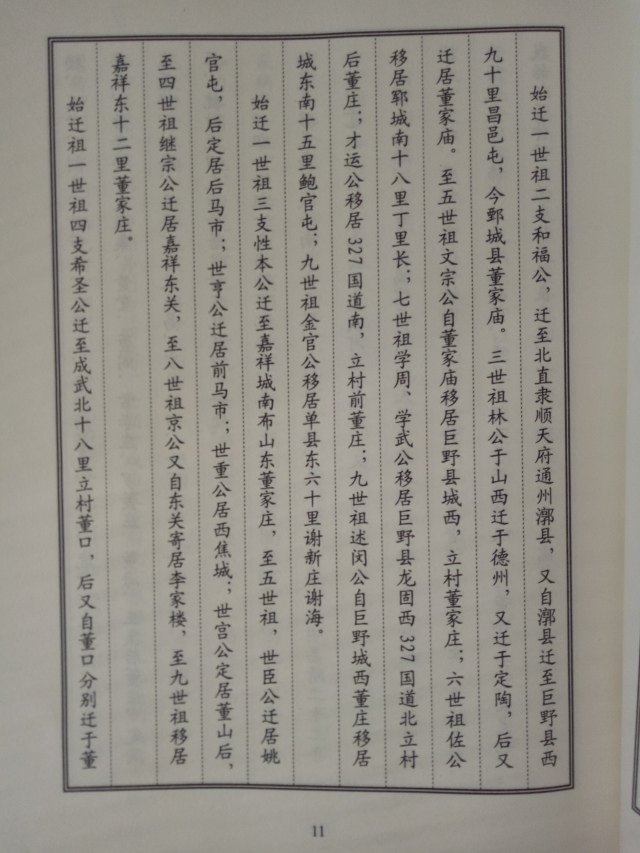 始迁一世祖二支和福公，迁至北直隶顺天府通州漷县，又自漷县迁至巨野县西
九十里昌邑屯，今鄄城县董家庙。三世祖林公于山西迁于德州，又迁于定陶，后又
迁居董家庙。至五世祖文宗公自董家庙移居巨野县城西，立村董家庄；六世祖佐公
移居郓城南十八里丁里长；七世祖学周、学武公移居巨野县龙固西327国道北立村
后董庄；才运公移居327国道南，立村前董庄；九世祖述闵公自巨野城西董庄移居
城东南十五里鲍官屯；九世祖金官公移居单县东六十里谢新庄谢海。
始迁一世祖三支性本公迁至嘉祥城南布山东董家庄，至五世祖，世臣公迁居姚
官屯，后定居后马市；世亨公迁居前马市；世重公居西焦城；世宫公定居董山后，
至四世祖继宗公迁居嘉祥东关，至八世祖京公又自东关寄居李家楼，至九世祖移居
嘉祥东十二里董家庄。
始迁祖一世祖四支希圣公迁至成武北十八里立村董口，后又自董口分别迁于董
11